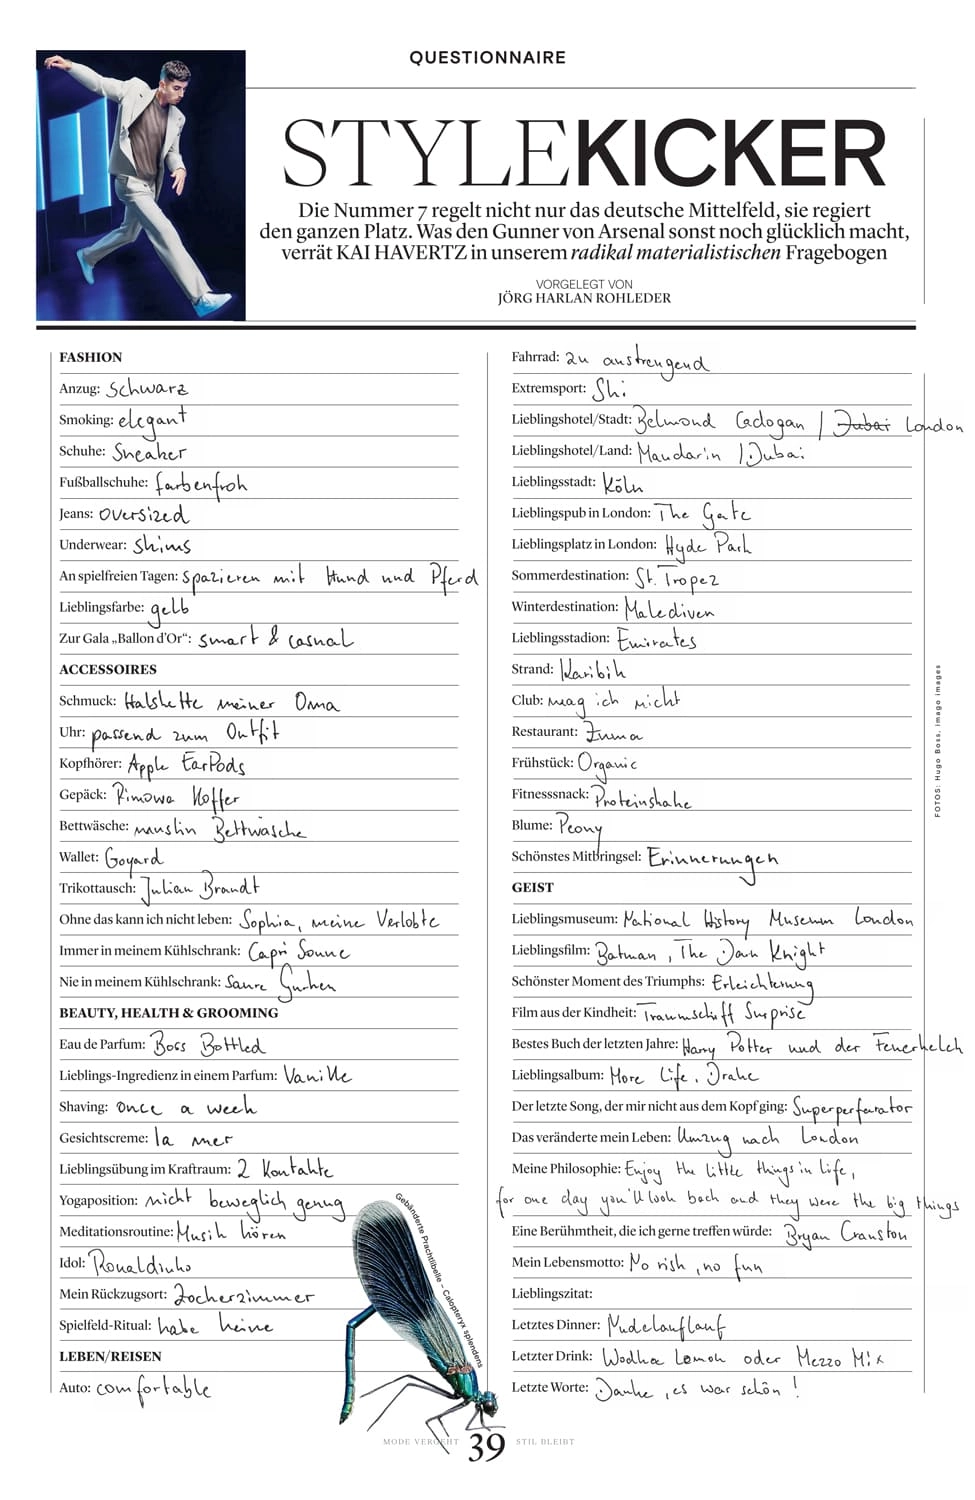 QUESTIONNAIRE
STYLEKICKER
Die Nummer 7 regelt nicht nur das deutsche Mittelfeld, sie regiert
den ganzen Platz. Was den Gunner von Arsenal sonst noch glücklich macht,
verrät KAI HAVERTZ in unserem radikal materialistischen Fragebogen
VORGELEGT VON
JÖRG HARLAN ROHLEDER
FASHION
Anzug: schwarz
Smoking: elegant
Schuhe: Sneaker
Fußballschuhe: farbenfroh
Jeans: oversized
Underwear: skims
An spielfreien Tagen: spazieren mit Hund und Pferd
Lieblingsfarbe: gelb
Zur Gala „Ballon d'Or“: smart & casual
ACCESSOIRES
Schmuck: Halskette meiner Oma
Uhr: passend zum Outfit
Kopfhörer: Apple EarPods
Gepäck: Rimowa Koffer
Bettwäsche: muslin Bettwäsche
Wallet: Goyard
Trikottausch: Julian Brandt
Ohne das kann ich nicht leben: Sophia, meine Verlobte
Immer in meinem Kühlschrank: Capri Sonne
Nie in meinem Kühlschrank: Saure Gurken
BEAUTY, HEALTH & GROOMING
Eau de Parfum: Boss Bottled
Lieblings-Ingredienz in einem Parfum: Vanille
Shaving: once a week
Gesichtscreme: la mer
Lieblingsübung im Kraftraum: 2 Kontakte
Yogaposition: nicht beweglich genug
Meditationsroutine: Musik hören
Idol: Ronaldinho
Mein Rückzugsort: Zockerzimmer
Spielfeld-Ritual: habe keine
LEBEN/REISEN
Auto: comfortable
Fahrrad: zu anstrengend
Extremsport: Ski
Lieblingshotel/Stadt: Belmond Cadogan / Dubai London
Lieblingshotel/Land: Mandarin / Dubai
Lieblingsstadt: Köln
Lieblingspub in London: The Gate
Lieblingsplatz in London: Hyde Park
Sommerdestination: St. Tropez
Winterdestination: Malediven
Lieblingsstadion: Emirates
Strand: Karibik
Club: mag ich nicht
Restaurant: Zuma
Frühstück: Organic
Fitnesssnack: Proteinshake
Blume: Peony
Schönstes Mitbringsel: Erinnerungen
GEIST
Lieblingsmuseum: National History Museum London
Lieblingsfilm: Batman, The Dark Knight
Schönster Moment des Triumphs: Erleichterung
Film aus der Kindheit: Traumschiff Surprise
Bestes Buch der letzten Jahre: Harry Potter und der Feuerkelch
Lieblingsalbum: More Life, Drake
Der letzte Song, der mir nicht aus dem Kopf ging: Superperforator
Das veränderte mein Leben: Umzug nach London
Meine Philosophie: Enjoy the little things in life,
for one day you'll look back and they were the big things
Eine Berühmtheit, die ich gerne treffen würde: Bryan Cranston
Mein Lebensmotto: No risk, no fun
Lieblingszitat:
Letztes Dinner: Nudelauflauf
Letzter Drink: Wodka Lemon oder Mezzo Mix
Letzte Worte: Danke, es war schön!
FOTOS: Hugo Boss, imago images
Gebänderte Prachtlibelle – Calopteryx splendens
MODE VERGEHT 39 STIL BLEIBT